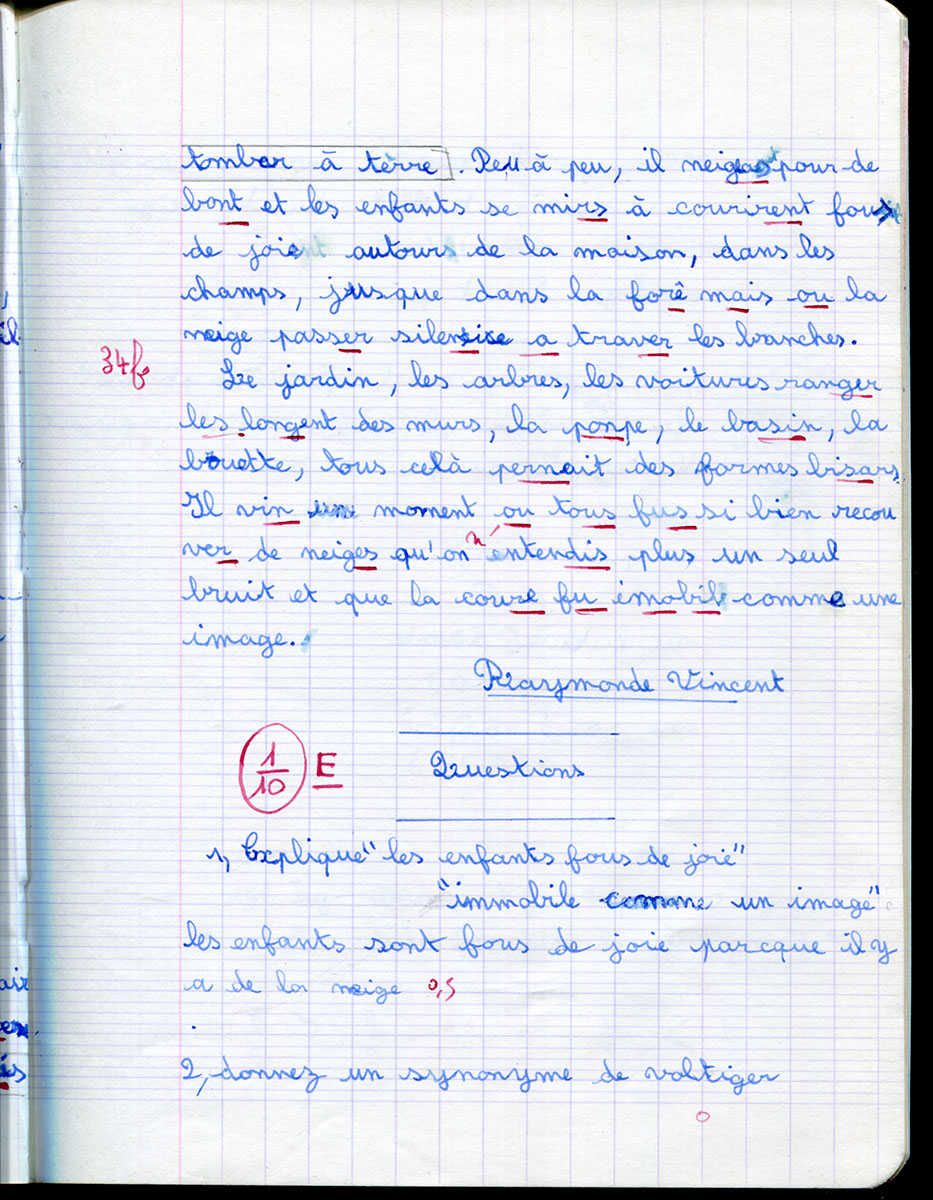 tomber à terre. Peu à peu, il neigeas pour de
bont et les enfants se mirs à courirent fous
de joie autours de la maison, dans les
champs, jusque dans la forê mais ou la
neige passer silensise a traver les branches.
34f.
Le jardin, les arbres, les voitures ranger
les longent des murs, la ponpe, le basin, la
bouette, tous celà pernait des formes bisars,
Il vin un moment ou tous fus si bien recou
ver de neiges qu'on n'entendis plus un seul
bruit et que la coure fu imobil comme une
image.
Raymonde Vincent
1/10 E Questions
1, Explique "les enfants fous de joie"
"immobile comme un image"
les enfants sont fous de joie parcque il y
a de la neige 0,5
2, donnez un synonyme de voltiger
0